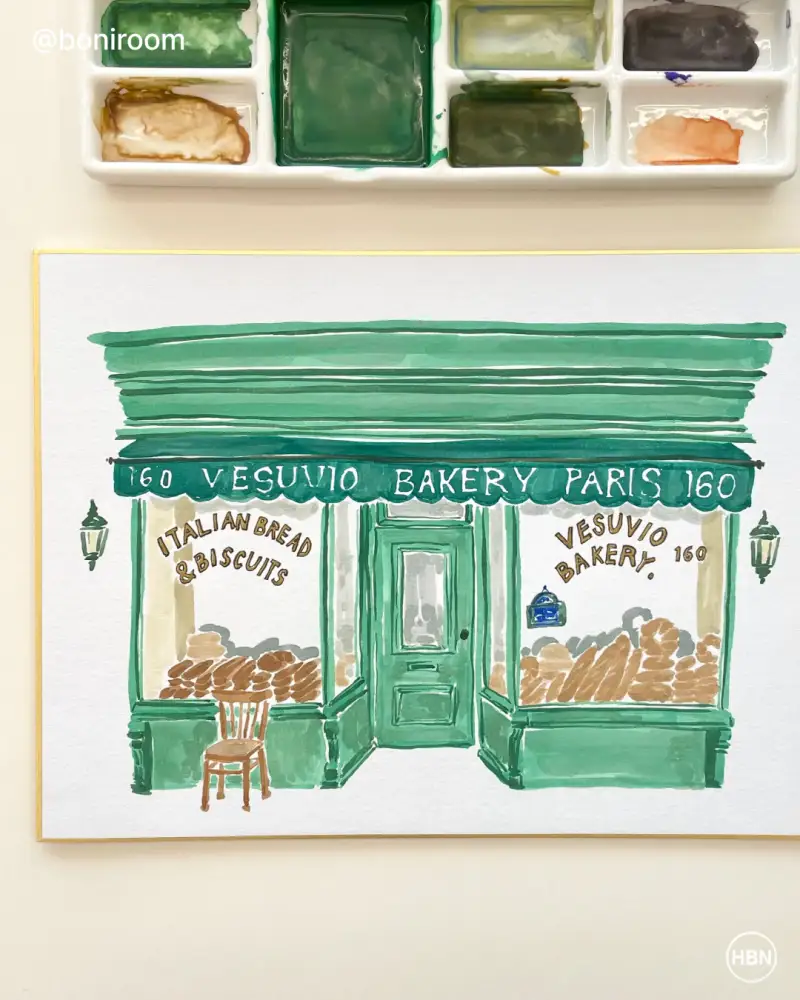 @boniroom
160 VESUVIO BAKERY PARIS 160
ITALIAN BREAD
& BISCUITS
VESUVIO
BAKERY. 160
HBN